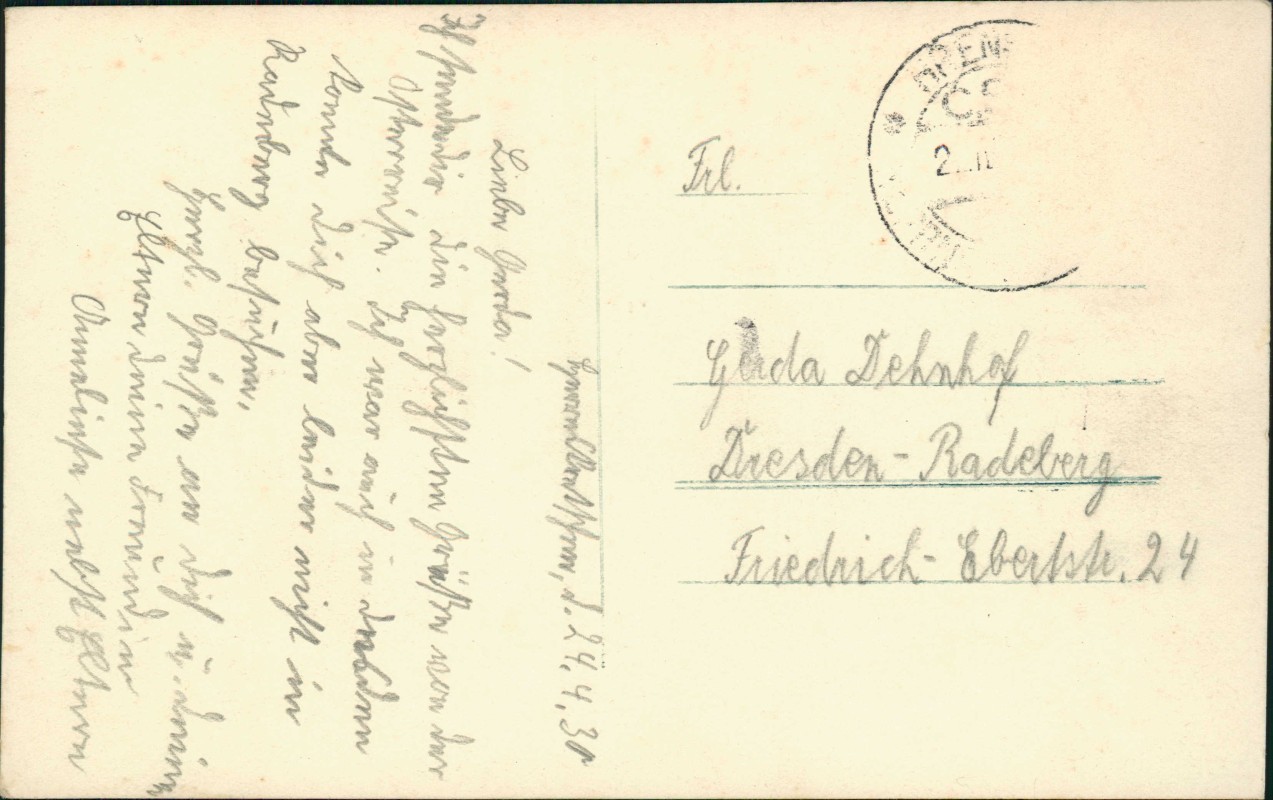 d. 24.4.30
Liebe Gerda!
Ich sende dir die herzlichsten Grüße von der
Osterreise. Ich war auch in
konnte dich aber leider nicht in
Radeberg besuchen.
Herzl. Grüße an dich u. deine
Eltern deine Freundin
Anneliese nebst Eltern
Frl.
Gerda Dehnhof
Dresden-Radeberg
Friedrich-Ebertstr. 24